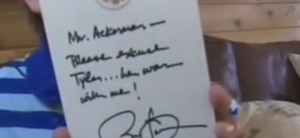 Mr. Ackerman —
Please excuse
Tyler...he was
with me!